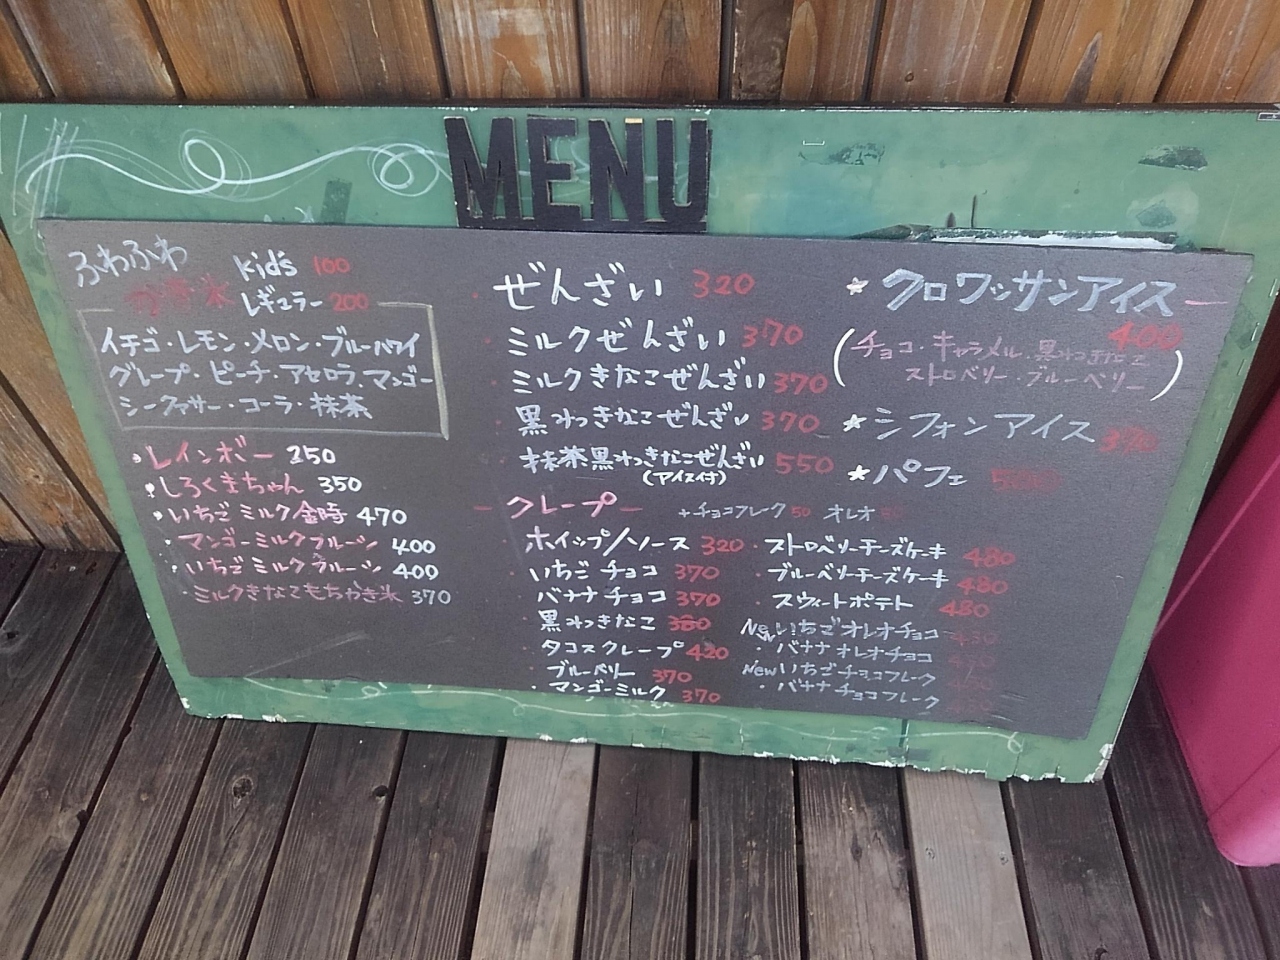 MENU
ふわふわ
かき氷
kid's 100
レギュラー 200
イチゴ・レモン・メロン・ブルーハワイ
グレープ・ピーチ・アセロラ・マンゴー
シークァサー・コーラ・抹茶
・レインボー 250
・しろくまちゃん 350
・いちごミルク金時 470
・マンゴーミルクフルーツ 400
・いちごミルクフルーツ 400
・ミルクきなこもちかき氷 370
・ぜんざい 320
・ミルクぜんざい 370
・ミルクきなこぜんざい 370
・黒みつきなこぜんざい 370
・抹茶黒みつきなこぜんざい 550
(アイス付)
ークレープー +チョコフレーク 50 オレオ
・ホイップ/ソース 320
・いちごチョコ 370
・バナナチョコ 370
・黒みつきなこ
・タコスクレープ 420
・ブルーベリー 370
・マンゴーミルク 370
・ストロベリーチーズケーキ 480
・ブルーベリーチーズケーキ 480
・スウィートポテト 480
New いちごオレオチョコ
・バナナオレオチョコ
New いちごチョコフレーク
・バナナチョコフレーク
★クロワッサンアイスー
400
(チョコ・キャラメル・黒みつきなこ
ストロベリー・ブルーベリー)
★シフォンアイス
★パフェ